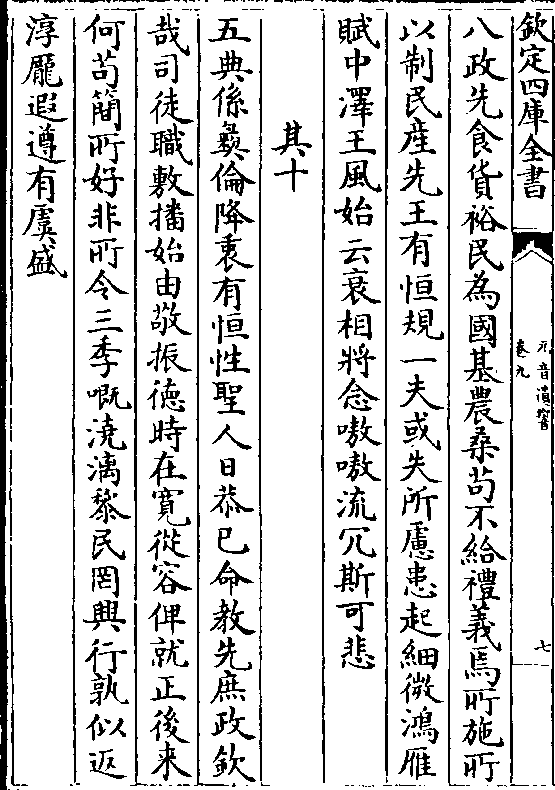 欽定四庫全書
元音遺響
卷九
七
八政先食貨裕民為國基農桑苟不給禮義焉所施所
以制民産先王有恒規一夫或失所慮患起細微鴻雁
賦中澤王風始云衰相將念嗷嗷流冗斯可悲
其十
五典係彛倫降衷有恒性聖人日恭已命教先庶政欽
哉司徒職敷播始由敬振徳時在寛從容俾就正後来
何苟簡所好非所令三季嘅澆漓黎民罔興行孰似返
淳龎遐遵有虞盛